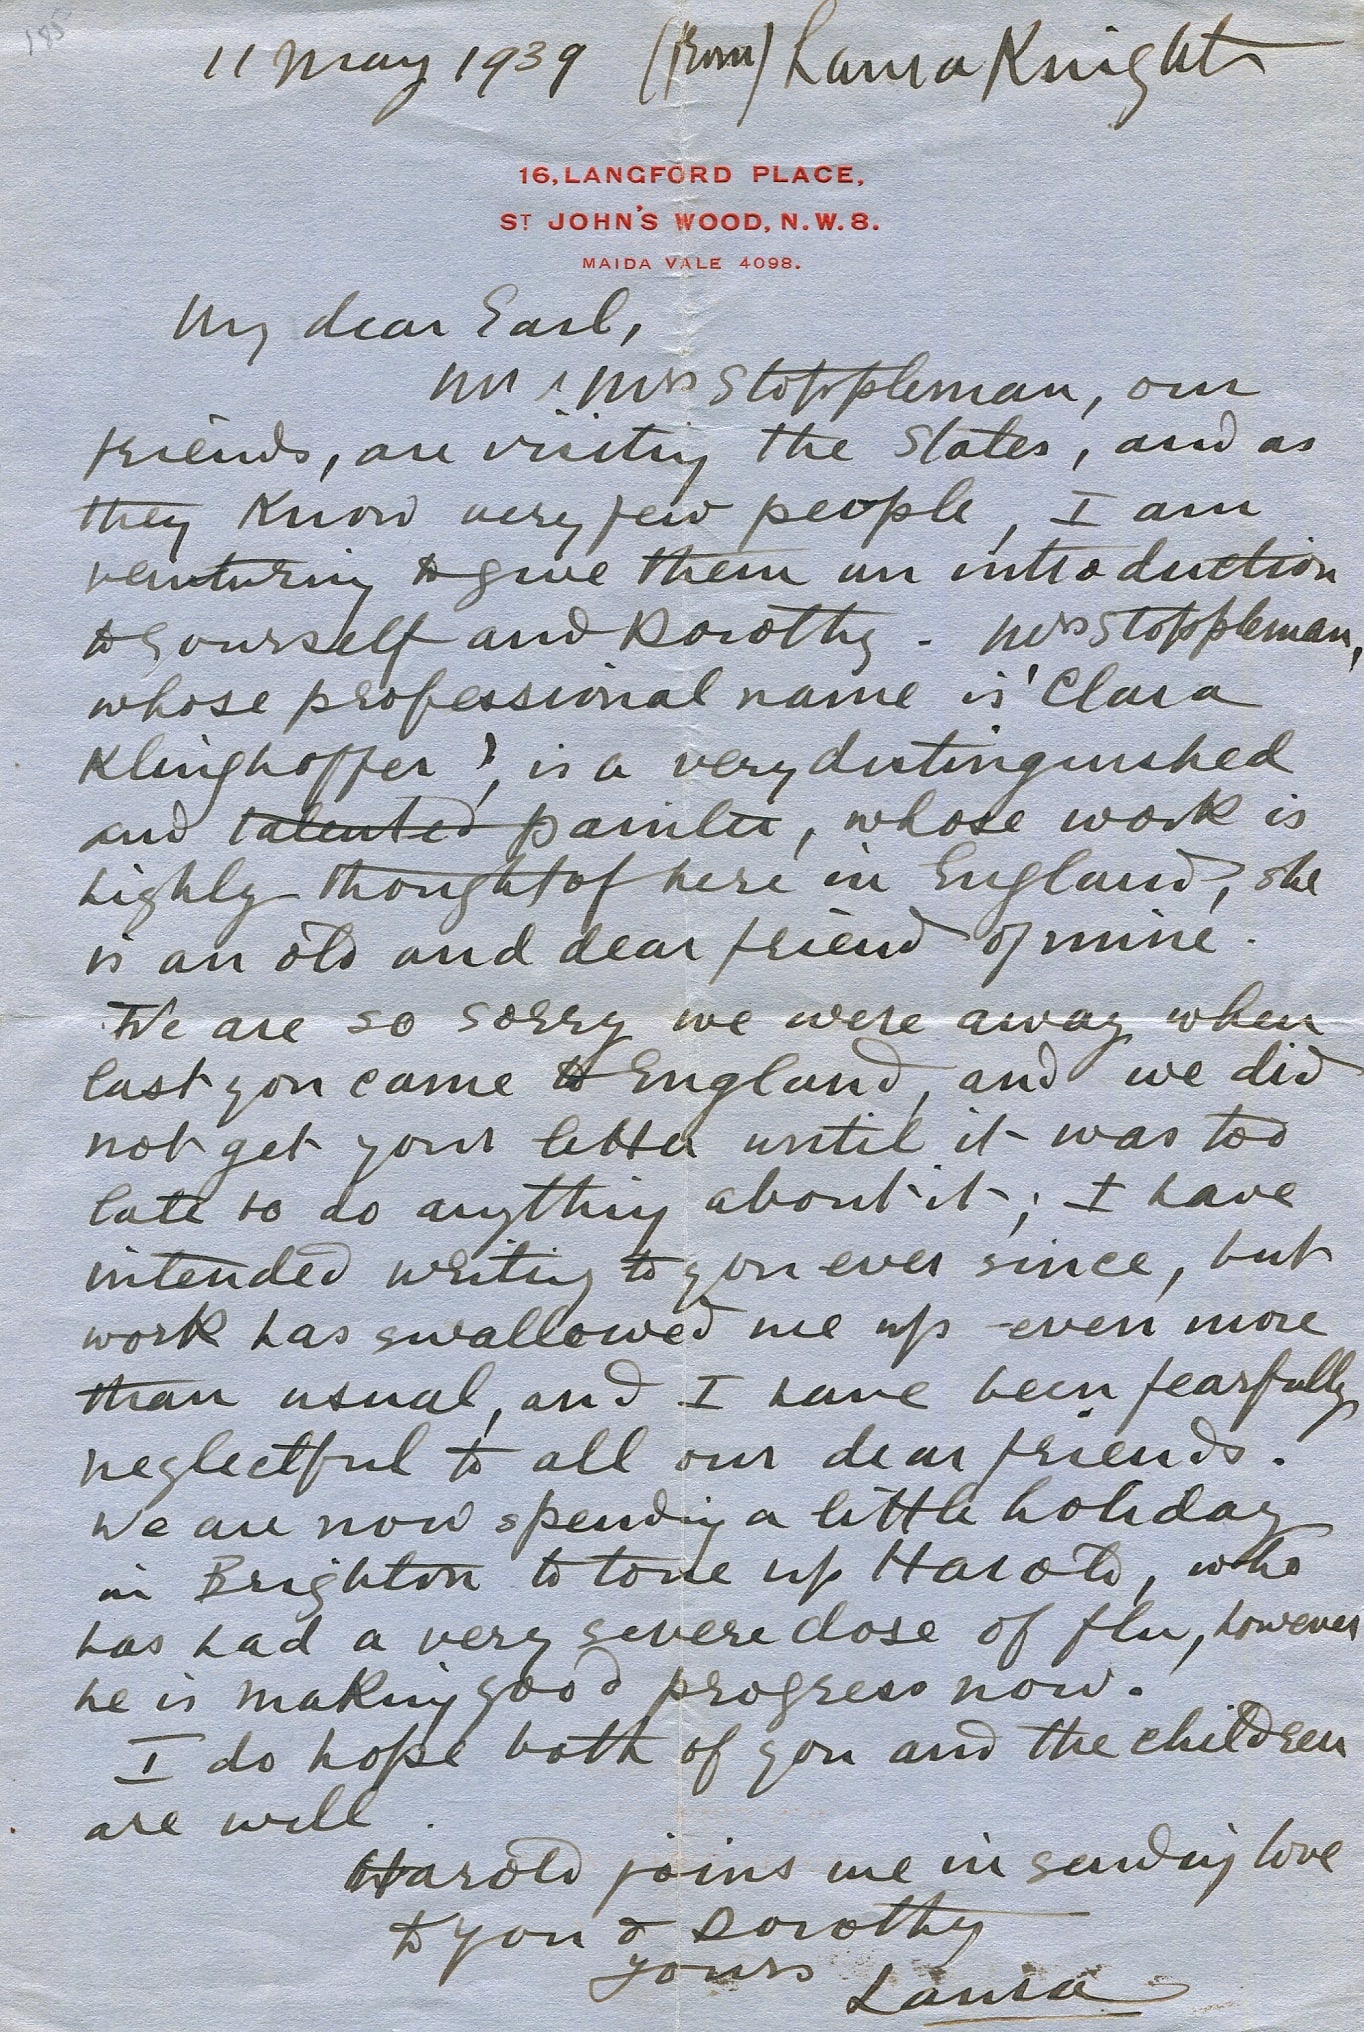 185
11 May 1939 (from) Laura Knight
16, LANGFORD PLACE,
ST JOHN'S WOOD, N.W.8.
MAIDA VALE 4098.
My dear Earl,
Mr & Mrs Stoppleman, our
friends, are visiting the States, and as
they know very few people, I am
venturing to give them an introduction
to yourself and Dorothy. Mrs Stoppleman,
whose professional name is 'Clara
Klinghoffer', is a very distinguished
and talented painter, whose work is
highly thought of here in England, she
is an old and dear friend of mine.
We are so sorry we were away when
last you came to England, and we did
not get your letter until it was too
late to do anything about it; I have
intended writing to you ever since, but
work has swallowed me up even more
than usual, and I have been fearfully
neglectful to all our dear friends.
We are now spending a little holiday
in Brighton to tone up Harold, who
has had a very severe dose of flu, however
he is making good progress now.
I do hope both of you and the children
are well.
Harold joins me in sending love
to you & Dorothy
yours
Laura